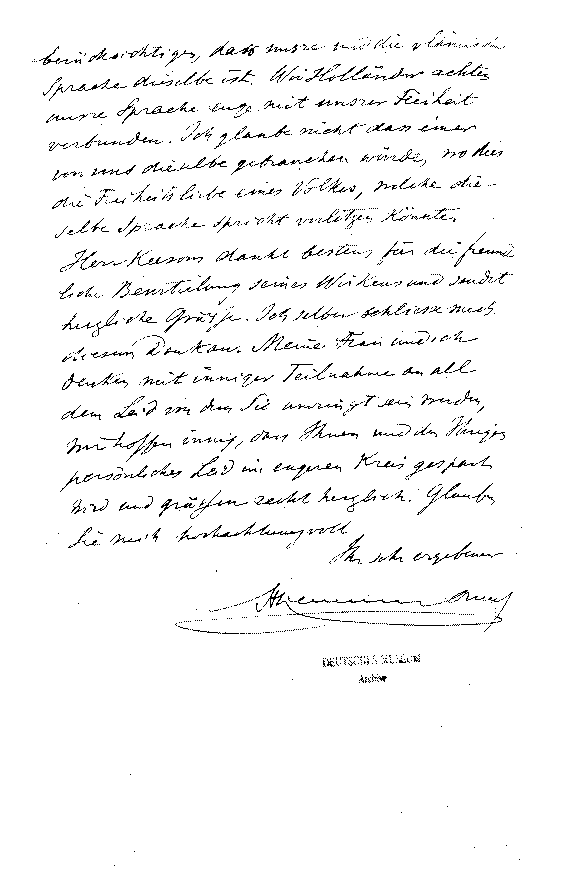 berücksichtigen, dass unsre und die vlämische
Sprache dieselbe ist. Wir Holländer achten
unsre Sprache enge mit unsrer Freiheit
verbunden. Ich glaube nicht dass einer
von uns dieselbe gebrauchen würde, wo dies
die Freiheitsliebe eines Volkes, welche die-
selbe Sprache spricht verletzen könnte.
Herr Keesom dankt bestens für die freund
liche Beurteilung seines Wirkens und sendet
herzliche Grüsse. Ich selber schliesse mich
diesem Dank an. Meine Frau und ich
denken mit inniger Teilnahme an all
dem Leid von dem Sie umringt sein werden,
wir hoffen innig, dass Ihnen und den Ihrigen
persönliches Leid im engeren Kreis gespart
wird und grüssen recht herzlich. Glauben
Sie mich hochachtungsvoll
Ihr sehr ergebener
DEUTSCHES MUSEUM
Archiv